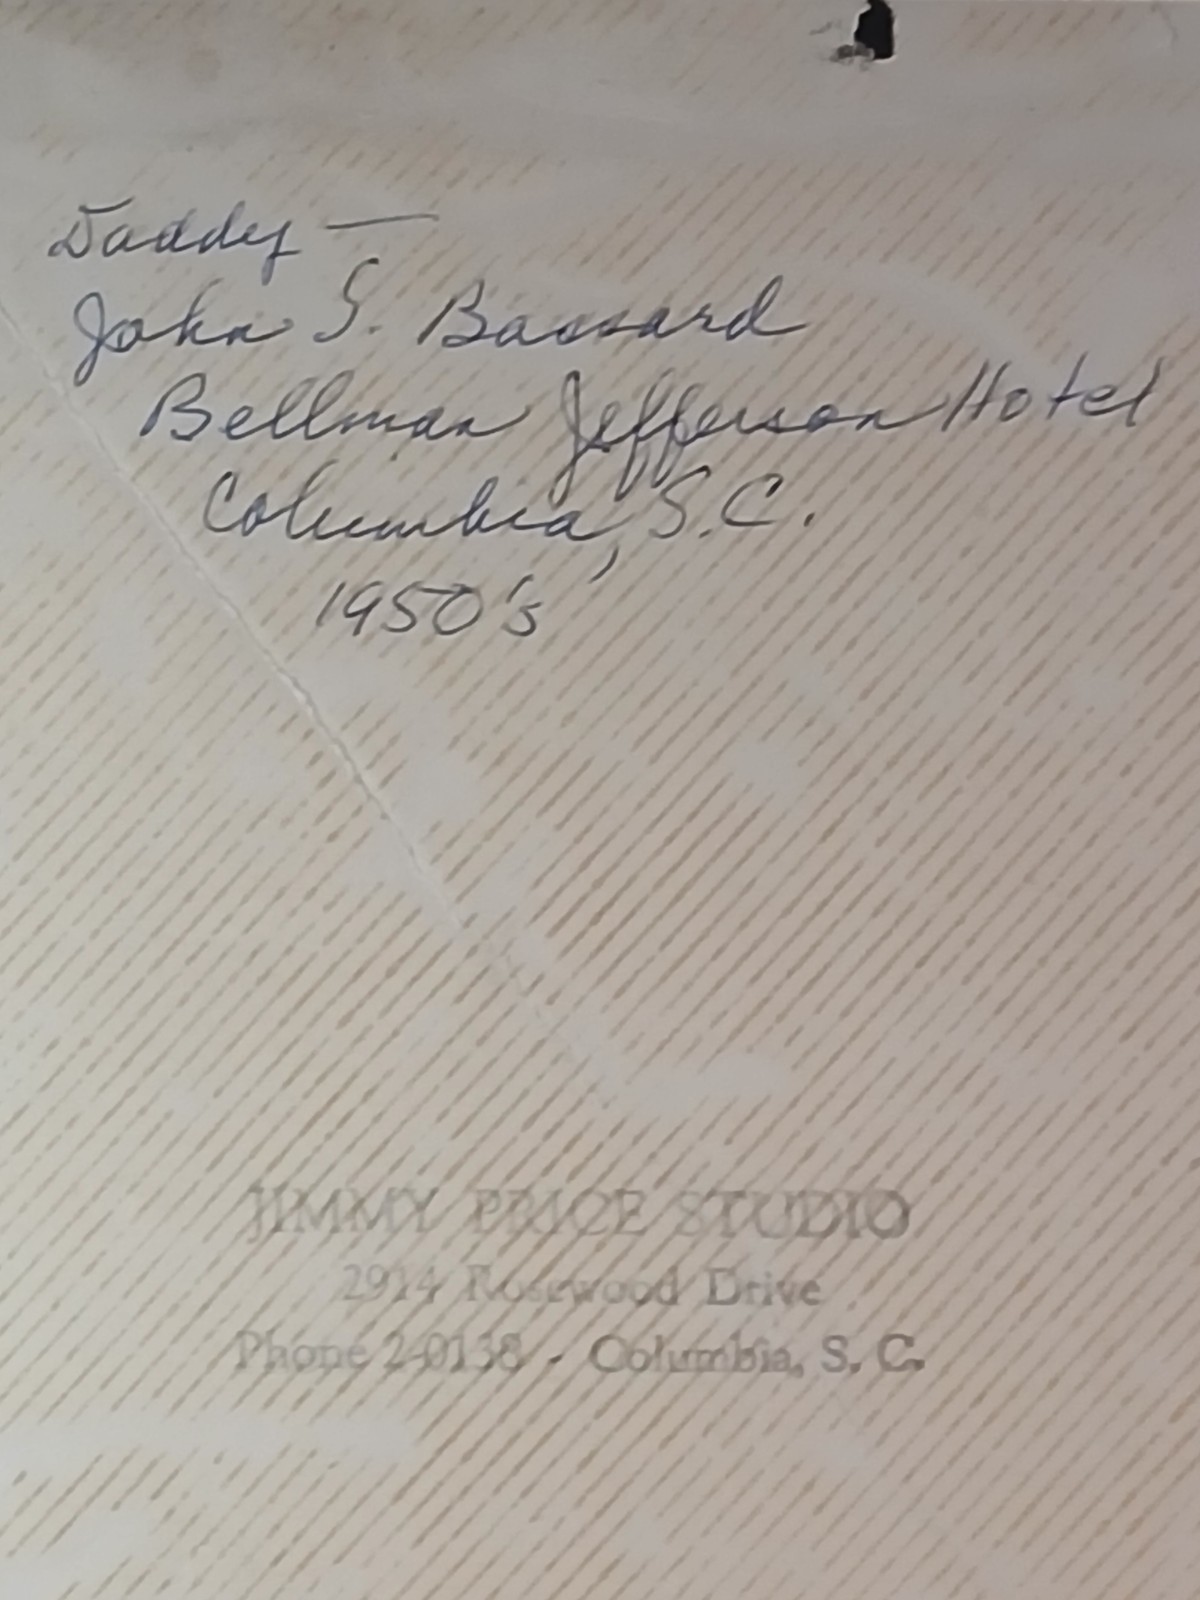 Daddy —
John S. Bassard
Bellman Jefferson Hotel
Columbia, S.C.
1950's
JIMMY PRICE STUDIO
2914 Rosewood Drive
Phone 2-0138 - Columbia, S. C.